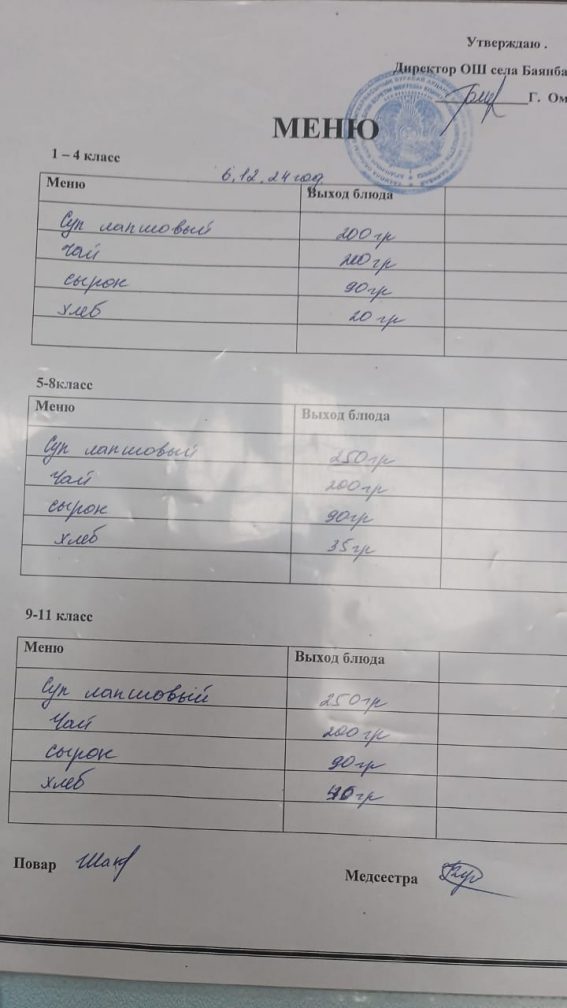 Утверждаю .
Директор ОШ села Баянба
Г. Ом
МЕНЮ
1 – 4 класс
6.12.24 год
Меню Выход блюда
Суп лапшовый 200 гр
Чай 200 гр
сырок 90 гр
хлеб 20 гр
5-8класс
Меню Выход блюда
Суп лапшовый 250 гр
Чай 200 гр
сырок 90 гр
хлеб 35 гр
9-11 класс
Меню Выход блюда
Суп лапшовый 250 гр
Чай 200 гр
сырок 90 гр
хлеб гр
Повар
Медсестра